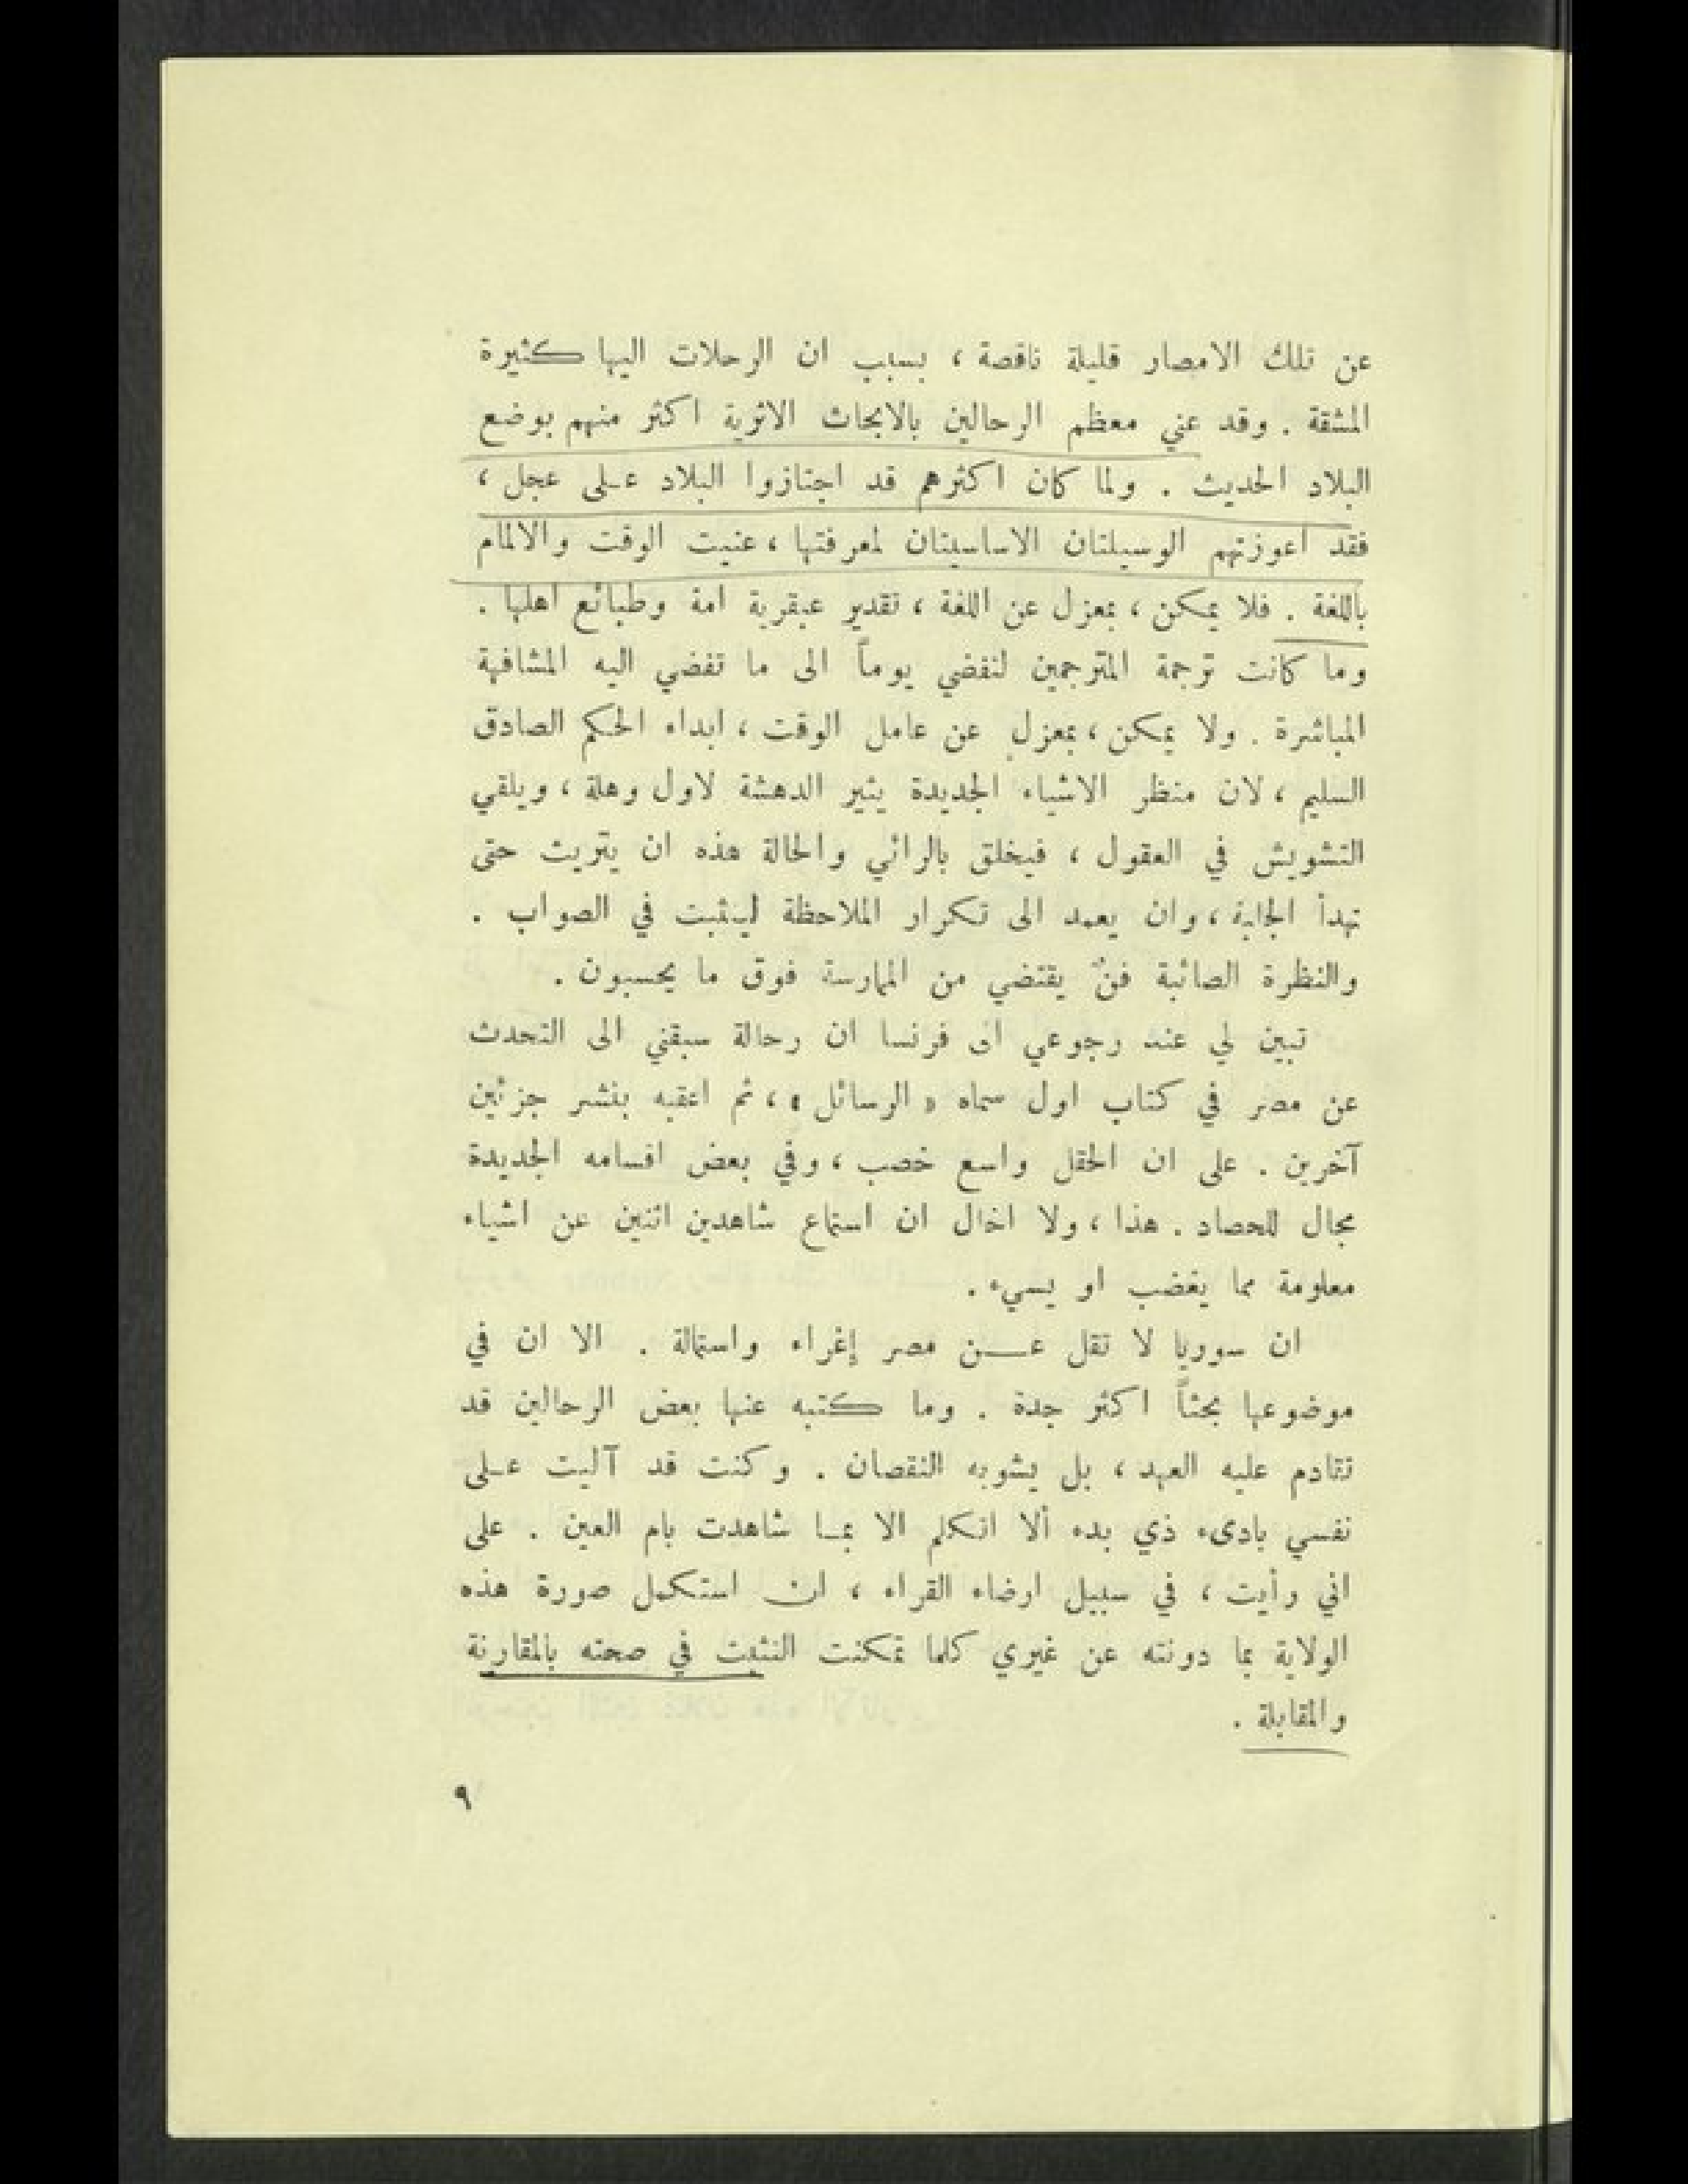 عن تلك الامصار قليلة ناقصة ، بسبب ان الرحلات اليها كثيرة
المشقة . وقد عني معظم الرحالين بالابحاث الاثرية اكثر منهم بوضع
البلاد الحديث . ولما كان اكثرهم قد اجتازوا البلاد على عجل ،
فقد اعوزتهم الوسيلتان الاساسيتان لمعرفتها ، عنيت الوقت والالمام
باللغة . فلا يمكن ، بمعزل عن اللغة ، تقدير عبقرية امة وطبائع اهلها .
وما كانت ترجمة المترجمين لتفضي يوماً الى ما تفضي اليه المشافهة
المباشرة . ولا يمكن ، بمعزل عن عامل الوقت ، ابداء الحكم الصادق
السليم ، لان منظر الاشياء الجديدة يثير الدهشة لاول وهلة ، ويلقي
التشويش في العقول ، فيخلق بالرائي والحالة هذه ان يتريث حتى
تهدأ الجلبة ، وان يعمد الى تكرار الملاحظة ليتثبت في الصواب .
والنظرة الصائبة فنٌ يقتضي من الممارسة فوق ما يحسبون .
تبين لي عند رجوعي الى فرنسا ان رحالة سبقني الى التحدث
عن مصر في كتاب اول سماه « الرسائل » ، ثم اعقبه بنشر جزئين
آخرين . على ان الحقل واسع خصب ، وفي بعض اقسامه الجديدة
مجال للحصاد . هذا ، ولا اخال ان استماع شاهدين اثنين عن اشياء
معلومة مما يغضب او يسيء .
ان سوريا لا تقل عن مصر إغراء واستمالة . الا ان في
موضوعها بحثاً اكثر جدة . وما كتبه عنها بعض الرحالين قد
تقادم عليه العهد ، بل يشوبه النقصان . وكنت قد آليت على
نفسي بادىء ذي بدء ألا اتكلم الا بما شاهدت بام العين . على
اني رأيت ، في سبيل ارضاء القراء ، ان استكمل صورة هذه
الولاية بما دونته عن غيري كلما تمكنت التثبت في صحته بالمقارنة
والمقابلة .
٩